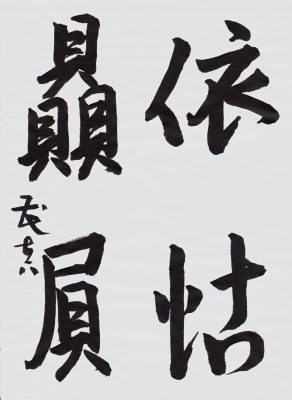 依怙
贔屓